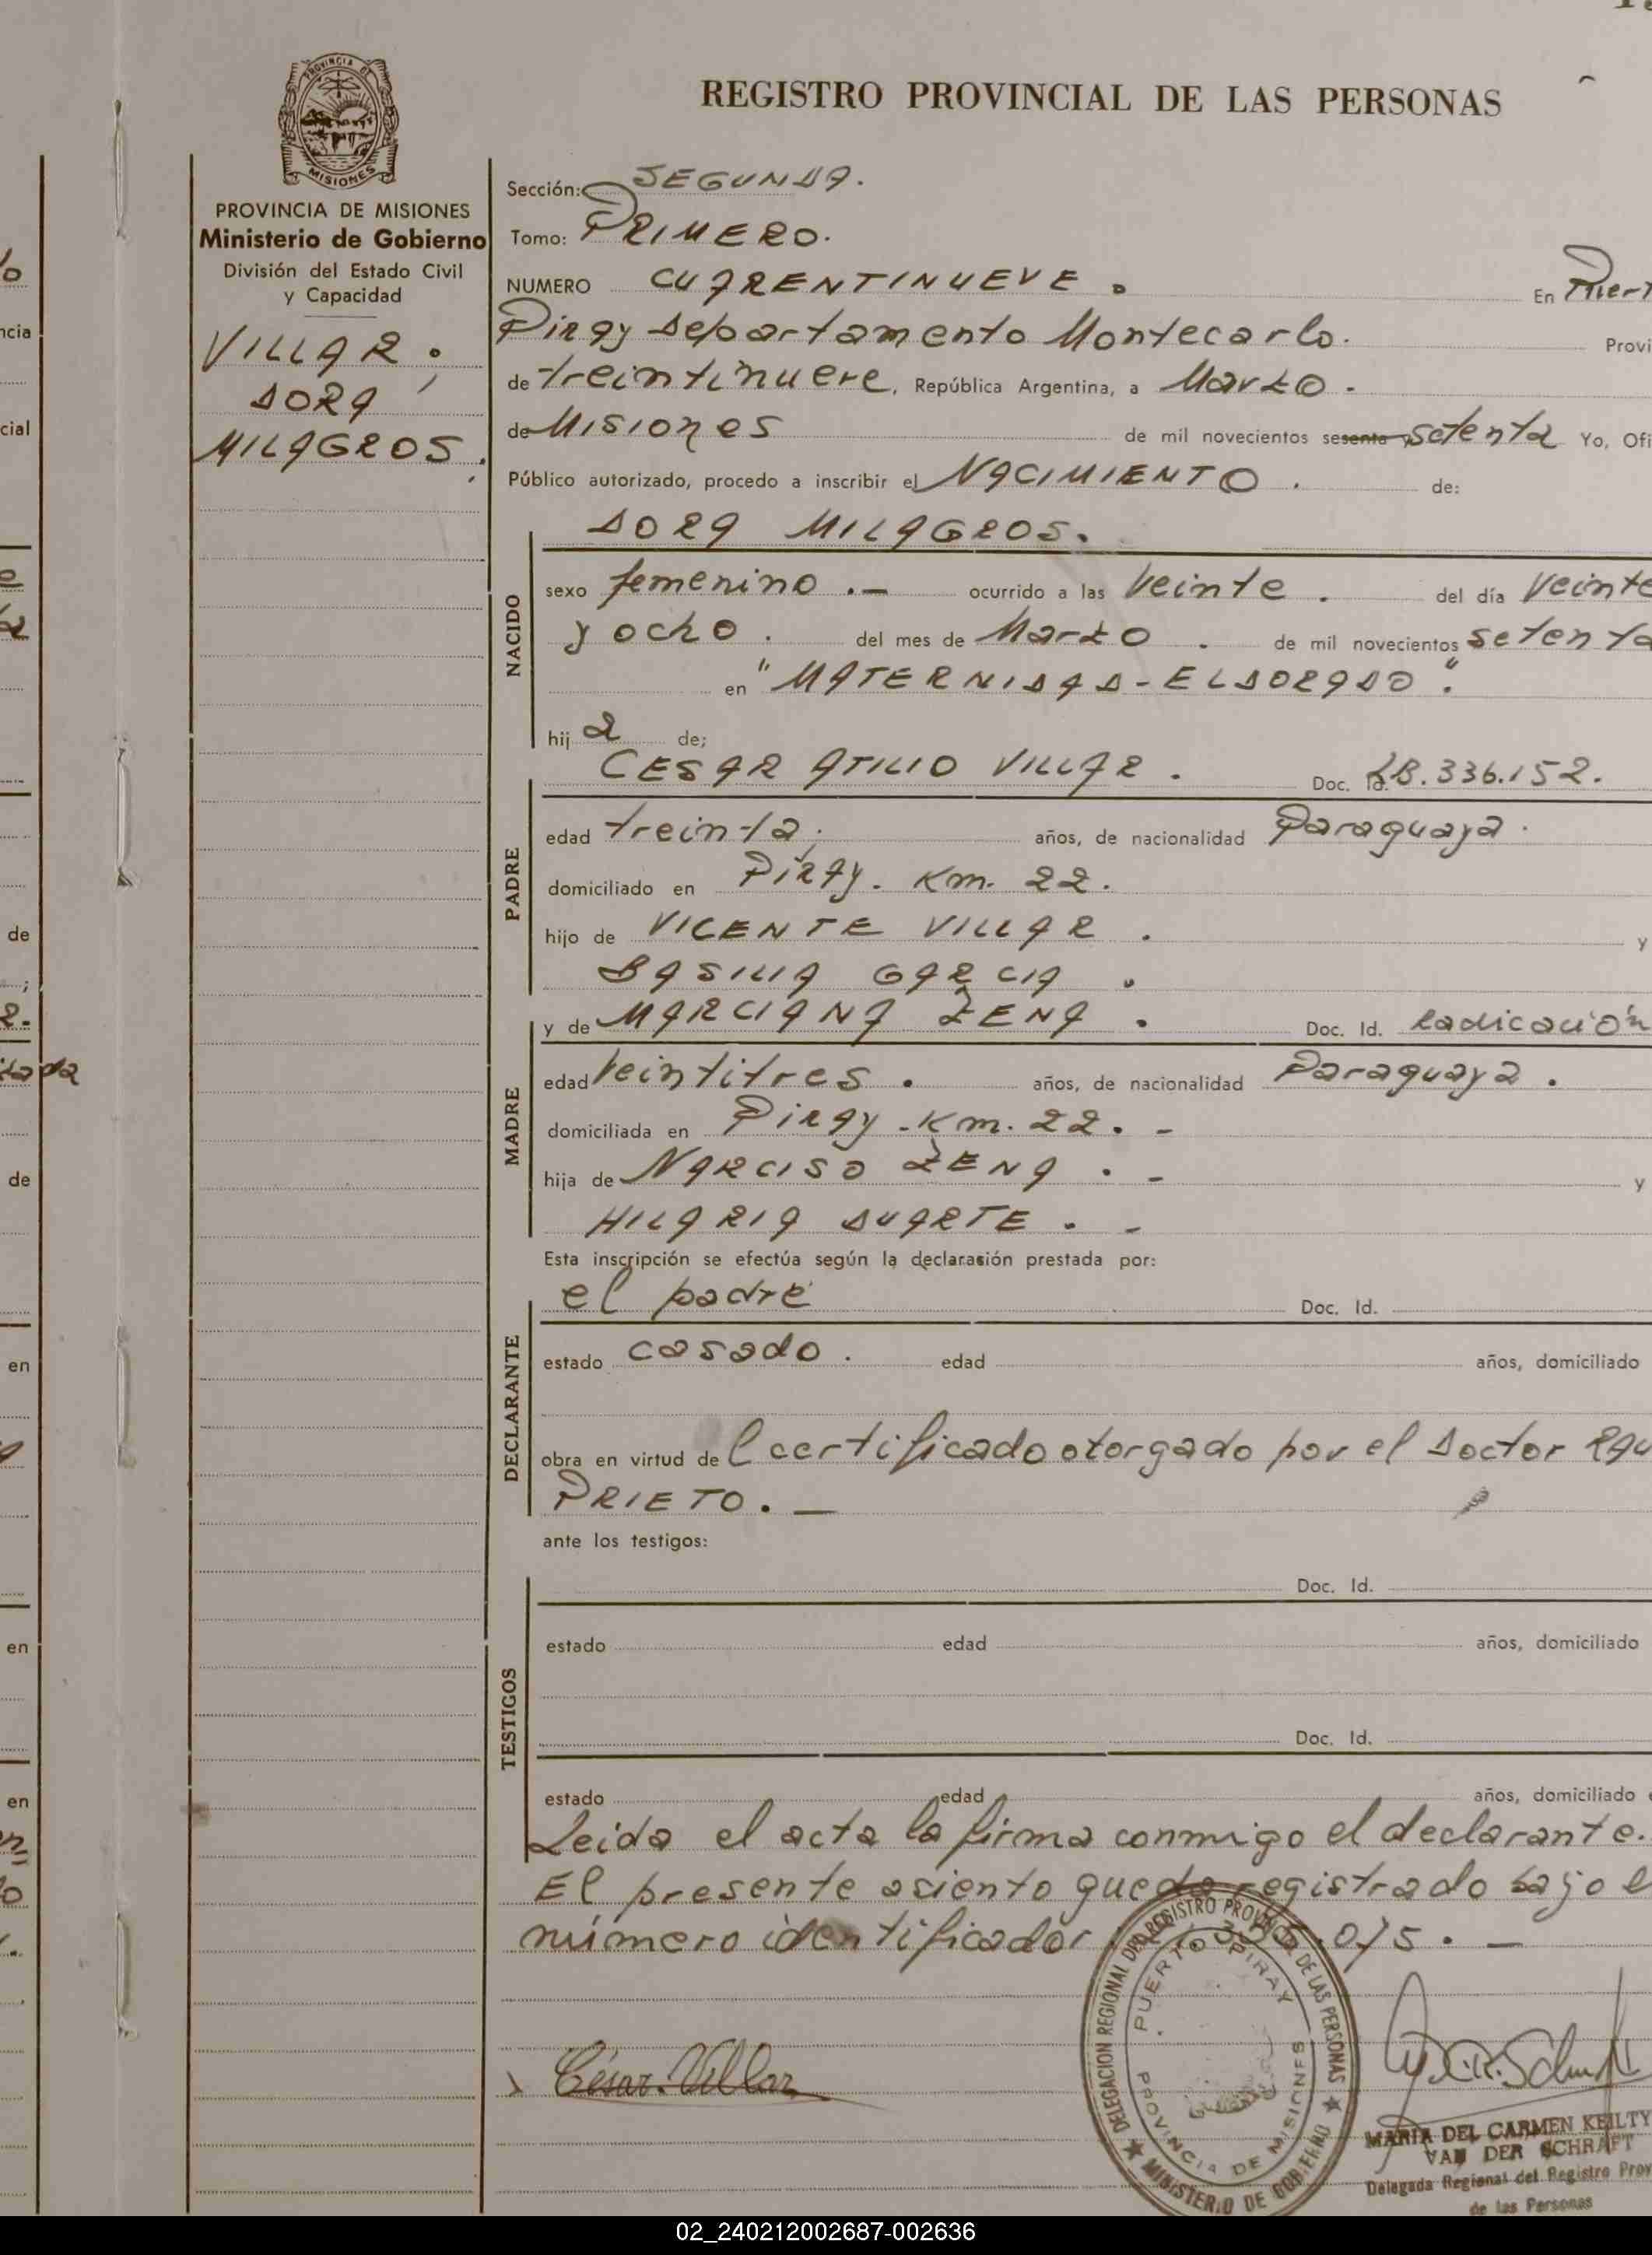 REGISTRO PROVINCIAL DE LAS PERSONAS
PROVINCIA DE
MISIONES
PROVINCIA DE MISIONES
Ministerio de Gobierno
División del Estado Civil
y Capacidad
VILLAR.
DORA
MILAGROS.
Sección: SEGUNDA.
Tomo: PRIMERO.
NUMERO CUARENTINUEVE. En Puert
Piray Departamento Montecarlo. Provi
de treintinueve, República Argentina, a Marzo.
de Misiones de mil novecientos sesenta y setenta Yo, Ofi
Público autorizado, procedo a inscribir el NACIMIENTO. de:
DORA MILAGROS.
NACIDO
sexo femenino.— ocurrido a las Veinte. del día Veinte
y ocho. del mes de Marzo. de mil novecientos setenta
en "MATERNIDAD-ELDORADO".
hij a de;
CESAR ATILIO VILLAR. Doc. Id. 18.336.152.
PADRE
edad treinta. años, de nacionalidad Paraguaya.
domiciliado en Piray. Km. 22.
hijo de VICENTE VILLAR. y
BASILIA GARCIA.
MADRE
y de MARCIANA ZENA. Doc. Id. Radicación
edad Veintitres. años, de nacionalidad Paraguaya.
domiciliada en Piray.Km.22.-
hija de NARCISO ZENA.- y
HILARIA DUARTE.-
Esta inscripción se efectúa según la declaración prestada por:
DECLARANTE
el padre Doc. Id.
estado casado. edad años, domiciliado
obra en virtud de l certificado otorgado por el Doctor
PRIETO.—
ante los testigos:
TESTIGOS
Doc. Id.
estado edad años, domiciliado
Doc. Id.
estado edad años, domiciliado
Leida el acta la firma conmigo el declarante.
El presente asiento queda registrado bajo e
número identificador
César Villar
DELEGACION REGIONAL DEL REGISTRO PROVINCIAL DE LAS PERSONAS
MINISTERIO DE GOBIERNO
PUERTO PIRAY
PROVINCIA DE MISIONES
MARIA DEL CARMEN KEILTY
VAN DER SCHRAFT
Delegada Regional del Registro Prov
de las Personas
02_240212002687-002636